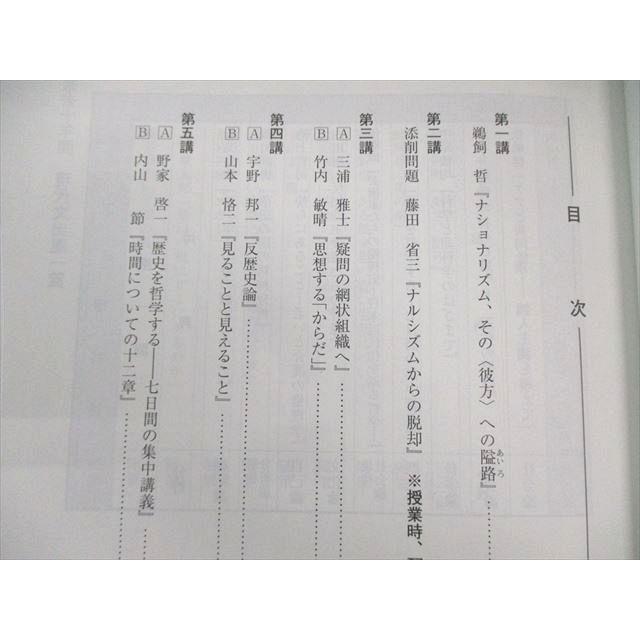 目次
第一講
鵜飼 哲『ナショナリズム、その〈彼方〉への隘路』
あいろ
第二講
添削問題 藤田 省三『ナルシズムからの脱却』 ※授業時、
第三講
A 三浦 雅士『疑問の網状組織へ』
B 竹内 敏晴『思想する「からだ」』
第四講
A 宇野 邦一『反歴史論』
B 山本 恪二『見ることと見えること』
第五講
A 野家 啓一『歴史を哲学する――七日間の集中講義』
B 内山 節『時間についての十二章』